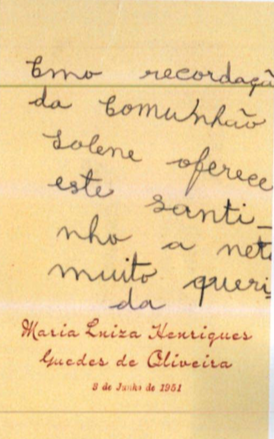 Como recordaçã
da Comunhão
Solene oferece
este santi_
nho a net
muito queri
da
Maria Luiza Henriques
Guedes de Oliveira
3 de Junho de 1951